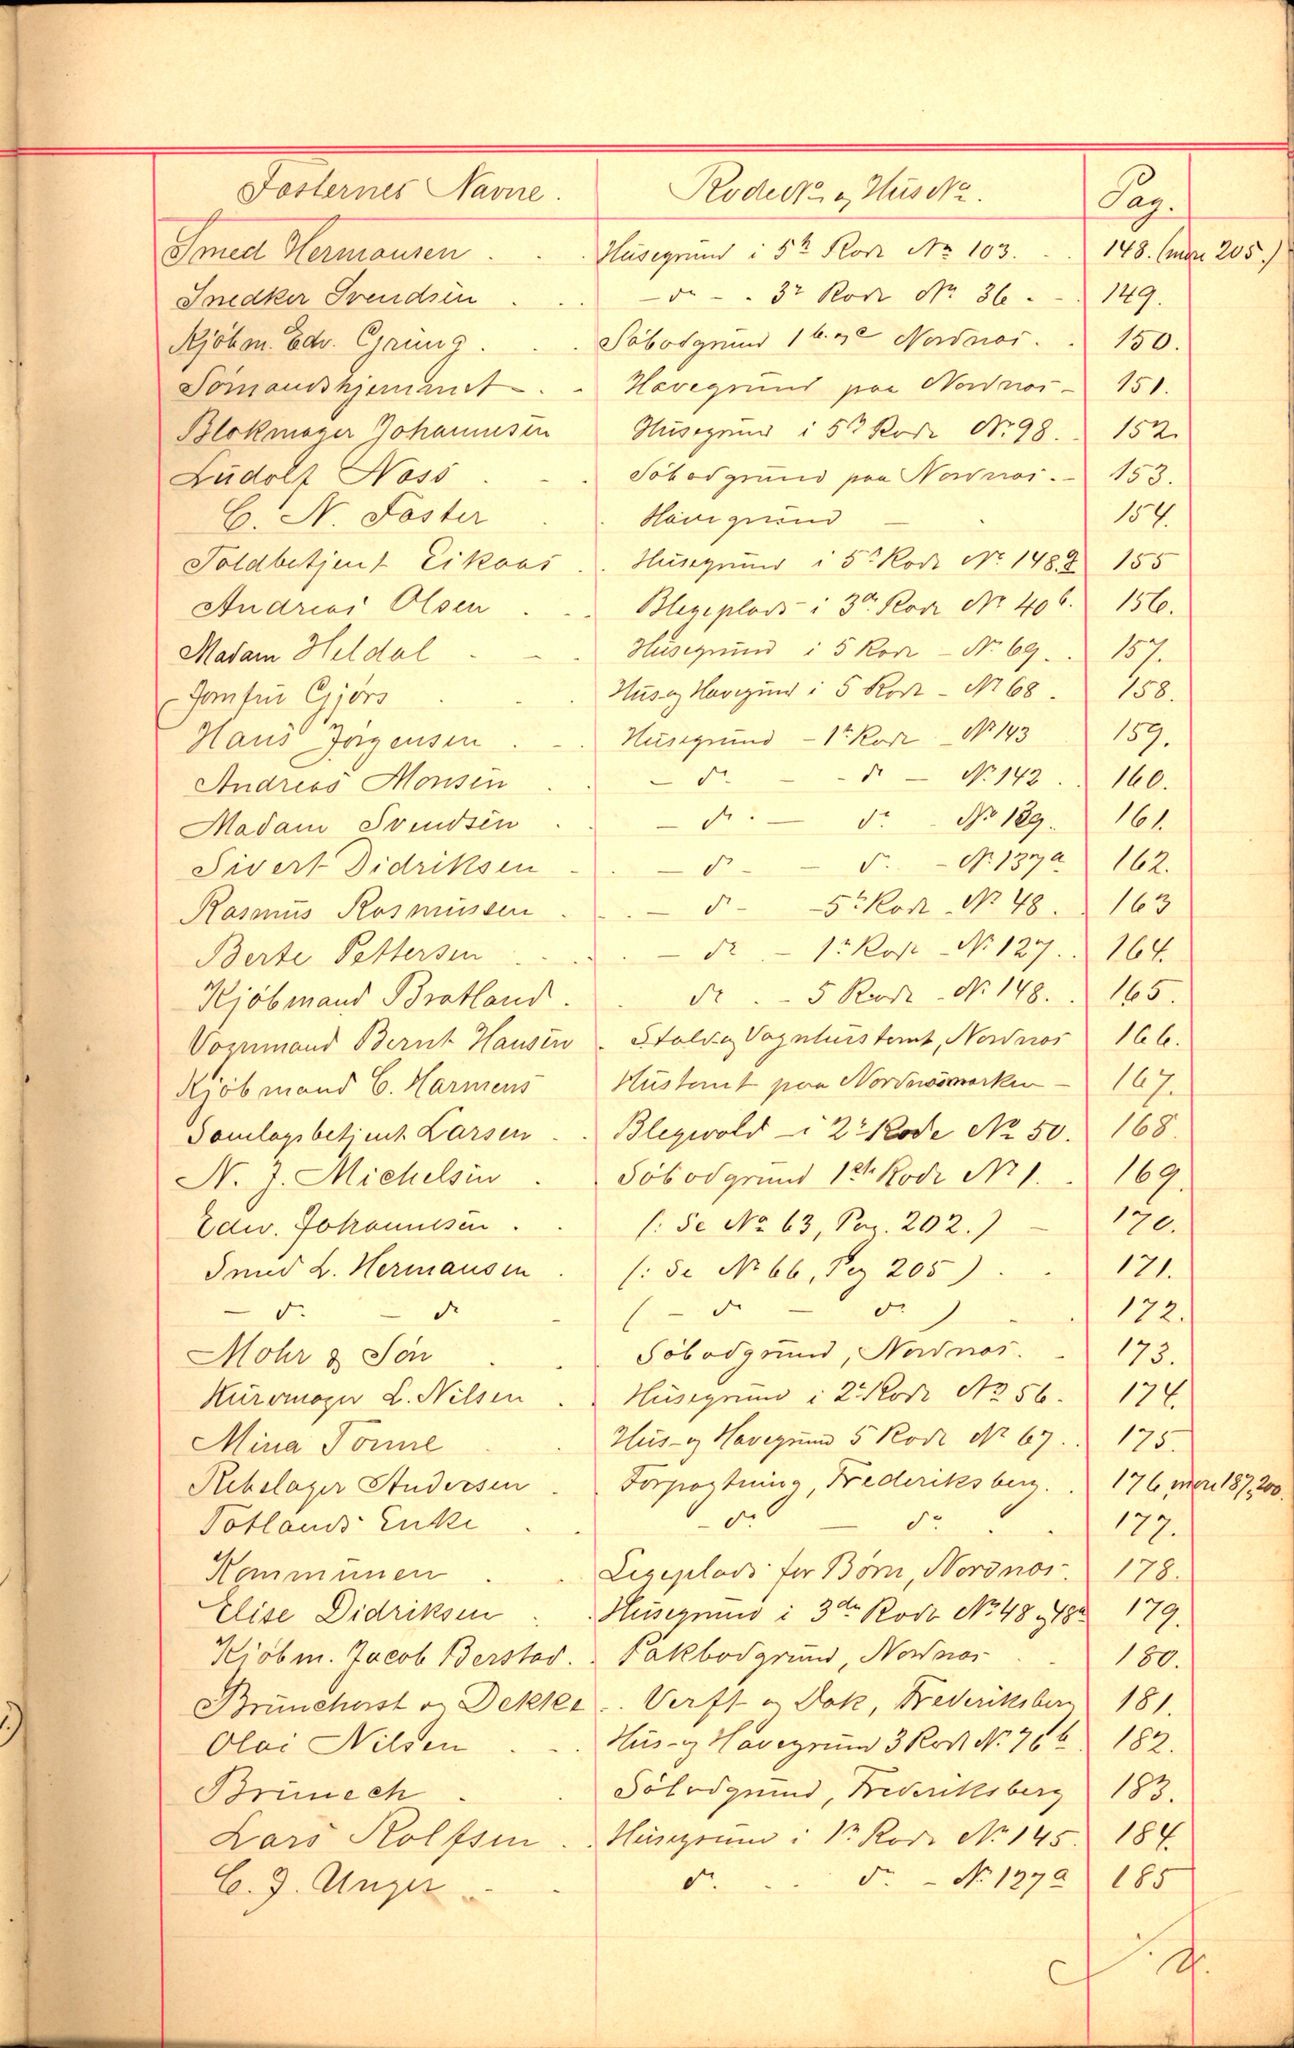 Fæsternes Navne. Rode№ og Hus№. Pag.
Smed Hermansen . . Husegrund i 5te Rode № 103. . . 148. (mere 205.)
Snedker Svendsen . . . — do — . 3die Rode No 36 . - 149.
Kjöbm. Edv. Grung . . . Söbodgrund 1 b. og c Nordnæs. . 150.
Sömandshjemmet . . Havegrund paa Nordnæs - 151.
Blokmager Johannesen Husegrund i 5te Rode No 98. . 152.
Ludolf Næss . . . Söbodgrund paa Nordnæs. - 153.
C. N. Faster . . Havegrund — . 154.
Toldbetjent Eikaas . . Husegrund i 5te Rode No 148 155
Andreas Olsen . . . Blegeplads i 3die Rode No 40 b. 156.
Madam Heldal . - . Husegrund i 5 Rode - No 69. . 157.
Jomfru Gjörs . . . Hus og Havegrund i 5 Rode - No 68. 158.
Hans Jörgensen . . . Husegrund - 1te Rode - No 143 159.
Andreas Monsen . . — do. — - do — No 142 . 160.
Madam Svendsen . . — do . — do - No 139. 161.
Sivert Didriksen - . — do - — do. - No 137 a 162.
Rasmus Rasmussen . . — do - - 5te Rode - No 48. . 163
Berte Pettersen . . . — do . - 1te Rode - No 127. . 164.
Kjöbmand Bratland . . do . - 5 Rode - No 148. . 165.
Vognmand Bernt Hansen . Stald og Vognhustomt, Nordnæs 166.
Kjöbmand C. Harmens Hustomt paa Nordnæsmarken - 167.
Samlagsbetjent Larsen . . Blegevold - i 2den Rode No 50. 168.
N. J. Michelsen . . Söbodgrund 1ste Rode No 1. . 169.
Edw. Johannesen . . (: Se No 63, Pag. 202.) — 170.
Smed L. Hermansen . (: Se No 66, Pag 205) . . 171.
— do. — do - ( — do — do ) . . 172.
Mohr & Sön . . Söbodgrund, Nordnæs. - 173.
Kurvmager L. Nilsen . . Husegrund i 2den Rode No 56. 174.
Mina Tonne . . Hus- og Havegrund 5 Rode No 67. . 175.
Rebslager Andersen . . Forpagtning, Frederiksberg. . 176 mere 187, 200.
Totlands Enke . . - do — do . . 177.
Kommunen . . Legeplads for Börn, Nordnæs. 178.
Elise Didriksen . . Husegrund i 3die Rode No 48 og 48a 179.
Kjöbm. Jacob Berstad. . Pakbodgrund, Nordnæs . . 180.
Brunchorst og Dekke . . Verft og Dok, Frederiksberg 181.
Olai Nilsen . . . Hus- og Havegrund 3 Rode No 76 b 182.
Brunech . . Söbodgrund, Frederiksberg 183.
Lars Rolfsen . . Husegrund i 1te Rode No 145. 184.
C. J. Unger . . - do. . . do - No 127 a 185